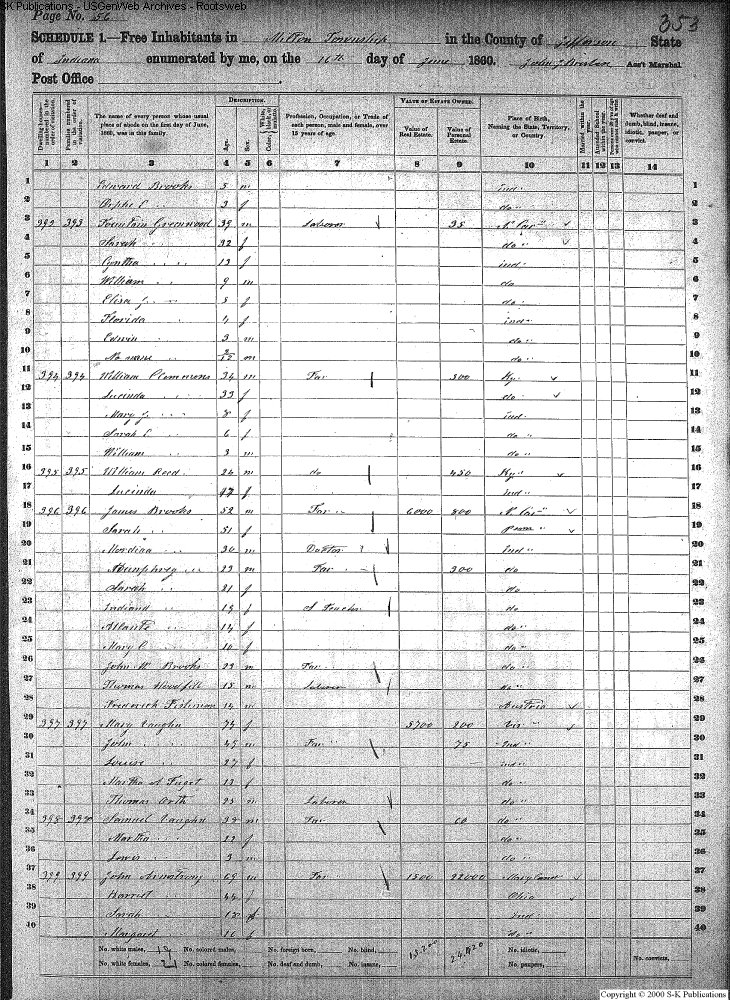 SK Publications - USGenWeb Archives - Rootsweb
Page No. 56
353
SCHEDULE 1.—Free Inhabitants in Milton Township in the County of Jefferson State
of Indiana enumerated by me, on the 16th day of June 1860. Ass't Marshal
Post Office
Dwelling-houses—numbered in the order of visitation.
Families numbered in the order of visitation.
The name of every person whose usual place of abode on the first day of June, 1860, was in this family.
DESCRIPTION.
Age.
Sex.
Color, White, black, or mulatto.
Profession, Occupation, or Trade of each person, male and female, over 15 years of age.
VALUE OF ESTATE OWNED.
Value of Real Estate.
Value of Personal Estate.
Place of Birth, Naming the State, Territory, or Country.
Married within the year.
Attended School within the year.
Whether deaf and dumb, blind, insane, idiotic, pauper, or convict.
1 2 3 4 5 6 7 8 9 10 11 12 13 14
1 Edward Brooks 5 m Ind 1
2 3 f do 2
3 393 393 Fountain Greenwood 39 m Laborer 35 N Car 3
4 Sarah 32 f do 4
5 Cyntha 13 f Ind 5
6 William 9 m do 6
7 Eliza J 8 f do 7
8 Florida 4 f Ind 8
9 Edwin 3 m do 9
10 No name 2/12 m do 10
11 394 394 William Clemmons 34 m Far 300 Ky 11
12 Lucinda 33 f do 12
13 Mary J 8 f Ind 13
14 Sarah E 6 f do 14
15 William 3 m do 15
16 395 395 William Reed 24 m do 450 Ky 16
17 Lucinda f Ind 17
18 396 396 James Brooks 52 m Far 6000 800 N Car 18
19 Sarah 51 f 19
20 30 m Doctor Ind 20
21 Humphrey 23 m Far 300 do 21
22 Sarah 21 f do 22
23 Indiana 19 f S Teacher do 23
24 14 f do 24
25 Mary C 10 f do 25
26 John W Brooks 23 m Far do 26
27 Thomas 15 m Laborer do 27
28 Frederick 14 m Austria 28
29 397 397 Mary Vaughn 74 f 5700 200 Vir 29
30 John 49 m Far 75 Ind 30
31 Louise 27 f Ind 31
32 Martha A 13 f do 32
33 Thomas Orth 23 m Laborer do 33
34 398 398 Samuel Vaughn 28 m Far 60 do 34
35 Martha 22 f do 35
36 Lewis 3 m do 36
37 399 399 John Armstrong 69 m Far 1500 22000 Maryland 37
38 Harriet 44 f Ohio 38
39 Sarah 18 f Ind 39
40 Margaret 16 f do 40
No. white males, 19 No. colored males, No. foreign born, No. blind, No. idiotic,
No. white females, 21 No. colored females, No. deaf and dumb, No. insane, No. paupers, No. convicts,
Copyright © 2000 S-K Publications